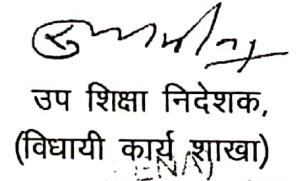 उप शिक्षा निदेशक,
(विधायी कार्य शाखा)